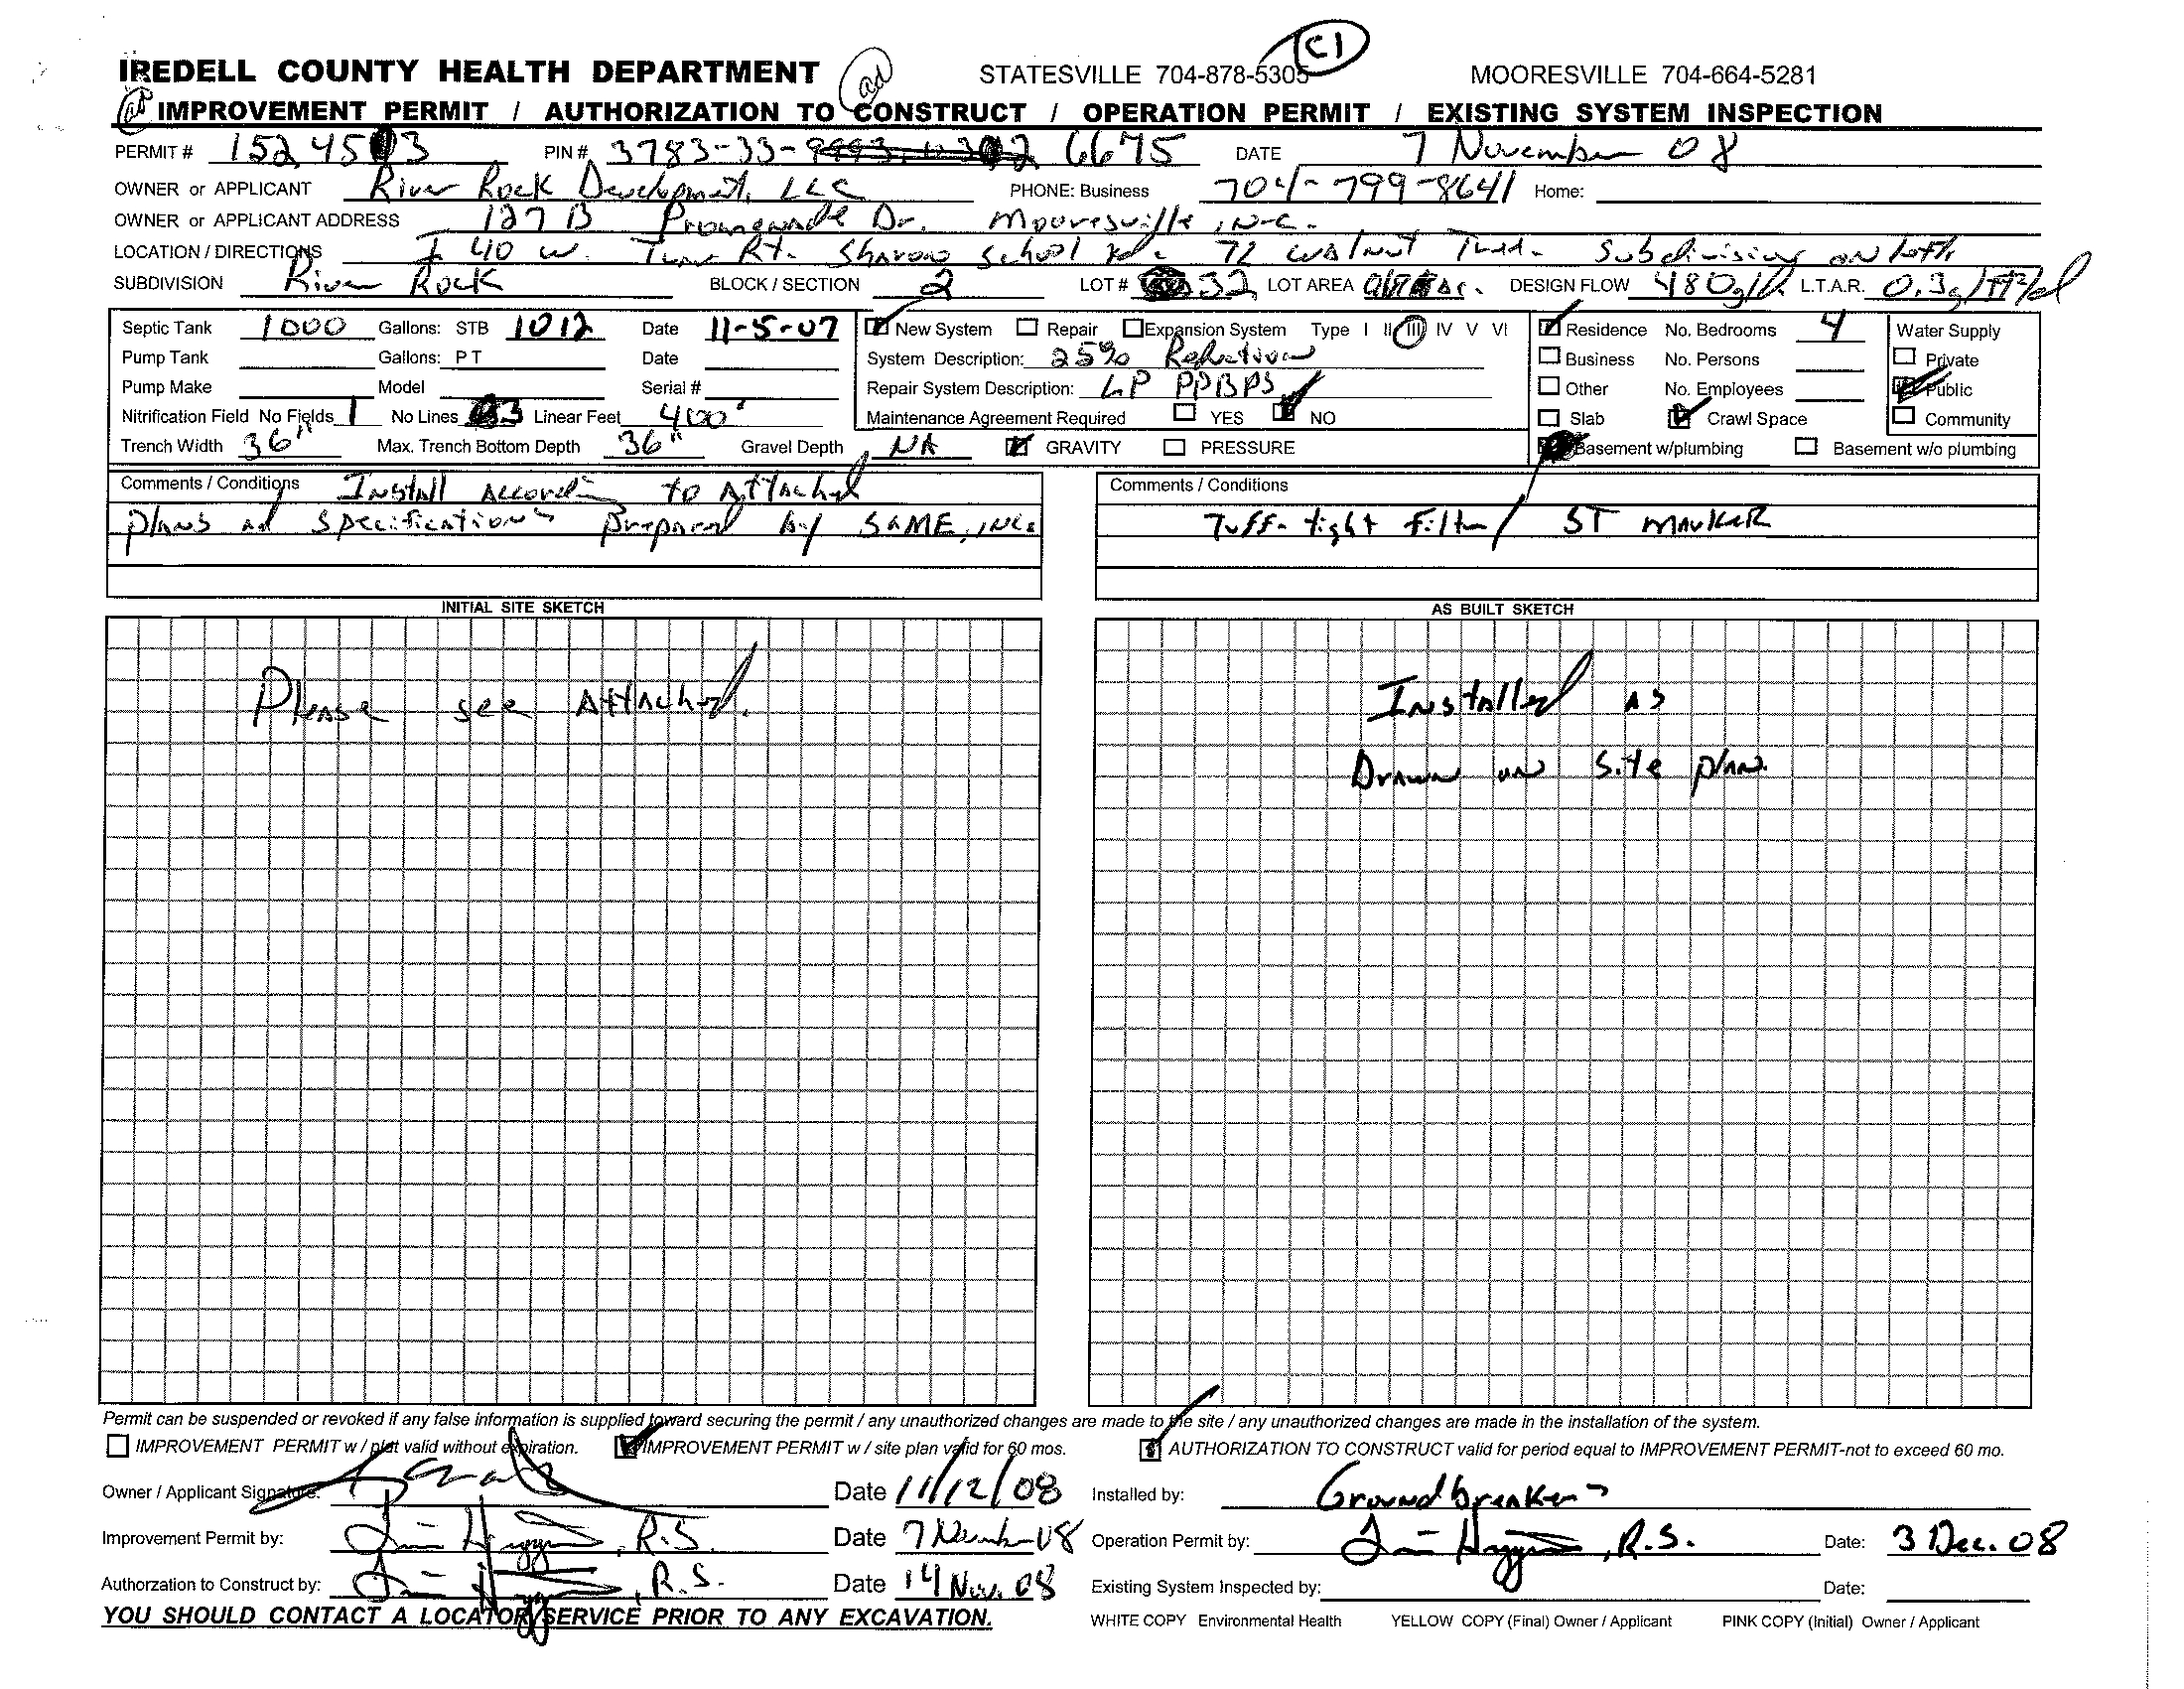 C1
IREDELL COUNTY HEALTH DEPARTMENT ad STATESVILLE 704-878-5305 MOORESVILLE 704-664-5281
IMPROVEMENT PERMIT / AUTHORIZATION TO CONSTRUCT / OPERATION PERMIT / EXISTING SYSTEM INSPECTION
PERMIT # 152453 PIN # 3783-33- 6675 DATE 7 November 08
OWNER or APPLICANT River Rock Development, LLC PHONE: Business 704-799-8641 Home:
OWNER or APPLICANT ADDRESS 127 B Promenade Dr. Mooresville, N.C.
LOCATION / DIRECTIONS I 40 W. Turn Rt. Sharon School Rd. 72 Walnut Subdivision on left
SUBDIVISION River Rock BLOCK / SECTION 2 LOT # 32 LOT AREA Ac. DESIGN FLOW 480g/d L.T.A.R. 0.3g/ft²/d
Septic Tank 1000 Gallons: STB 1012 Date 11-5-07 New System Repair Expansion System Type I II III IV V VI Residence No. Bedrooms 4 Water Supply
Pump Tank Gallons: P T Date System Description: 25% Reduction Business No. Persons Private
Pump Make Model Serial # Repair System Description: LP PPBPS Other No. Employees Public
Nitrification Field No Fields 1 No Lines 3 Linear Feet 400' Maintenance Agreement Required YES NO Slab Crawl Space Community
Trench Width 36" Max. Trench Bottom Depth 36" Gravel Depth NA GRAVITY PRESSURE Basement w/plumbing Basement w/o plumbing
Comments / Conditions Install According to Attached Comments / Conditions
plans and specifications prepared by SAME, INC. Tuff-tight filter / ST marker
INITIAL SITE SKETCH AS BUILT SKETCH
Please see Attached. Installed as
Drawn on site plan.
Permit can be suspended or revoked if any false information is supplied toward securing the permit / any unauthorized changes are made to the site / any unauthorized changes are made in the installation of the system.
IMPROVEMENT PERMIT w / plat valid without expiration. IMPROVEMENT PERMIT w / site plan valid for 60 mos. AUTHORIZATION TO CONSTRUCT valid for period equal to IMPROVEMENT PERMIT-not to exceed 60 mo.
Owner / Applicant Signature: Date 11/12/08 Installed by: Groundbreakers
Improvement Permit by: , R.S. Date 7 November 08 Operation Permit by: , R.S. Date: 3 Dec. 08
Authorzation to Construct by: , R.S. Date 14 Nov. 08 Existing System Inspected by: Date:
YOU SHOULD CONTACT A LOCATOR SERVICE PRIOR TO ANY EXCAVATION. WHITE COPY Environmental Health YELLOW COPY (Final) Owner / Applicant PINK COPY (Initial) Owner / Applicant